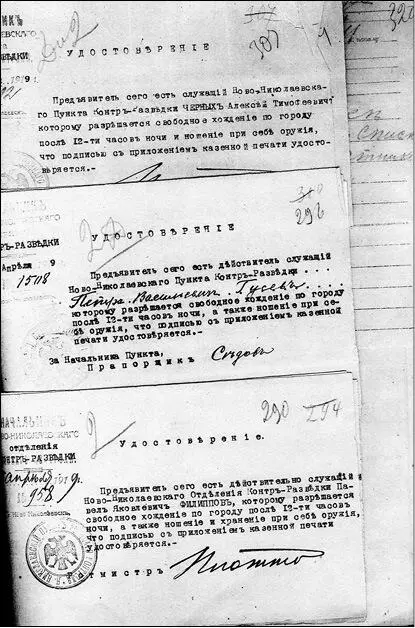 307
307
УДОСТОВѢРЕНIЕ
Предъявитель сего есть служащiй Ново-Николаевска-
го Пункта Контръ-Развѣдки ЧЕРНЫХЪ Алексѣй Тимофеевичъ
которому разрѣшается свободное хожденiе по городу
послѣ 12-ти часовъ ночи и ношенiе при себѣ оружiя,
что подписью съ приложенiемъ казенной печати удосто-
вѣряется.-
296
УДОСТОВѢРЕНIЕ
ТРЪ-РАЗВѢДКИ
Апрѣля 9
1508
Предъявитель сего есть дѣйствитель служащiй
Ново-Николаевскаго Пункта Контръ-Развѣдки . . . .
Петръ Васильевичъ Гусевъ . . .
которому разрѣшается свободное хожденiе по городу
послѣ 12-ти часовъ ночи, а также ношенiе при се-
бѣ оружiя, что подписью съ приложенiемъ казенной
печати удостовѣряется.-
За Начальника Пункта,
Прапорщикъ
290 294
НАЧАЛЬНИКЪ
ОВО-НИКОЛАЕВСКАГО
ОТДѢЛЕНIЯ
ОНТРЪ-РАЗВѢДКИ
апрѣля 1919 г.
958
Удостовѣренiе.
Предъявитель сего есть дѣйствительно служащiй
Ново-Николаевскаго Отдѣленiя Контръ-Развѣдки Па-
велъ Яковлевичъ ФИЛИППОВЪ, которому разрѣшается
свободное хожденiе по городу послѣ 12-ти часовъ
ночи, а также ношенiе и храненiе при себѣ оружiя,
что подписью съ приложенiемъ казенной печати
удостовѣряется.-
тмистръ